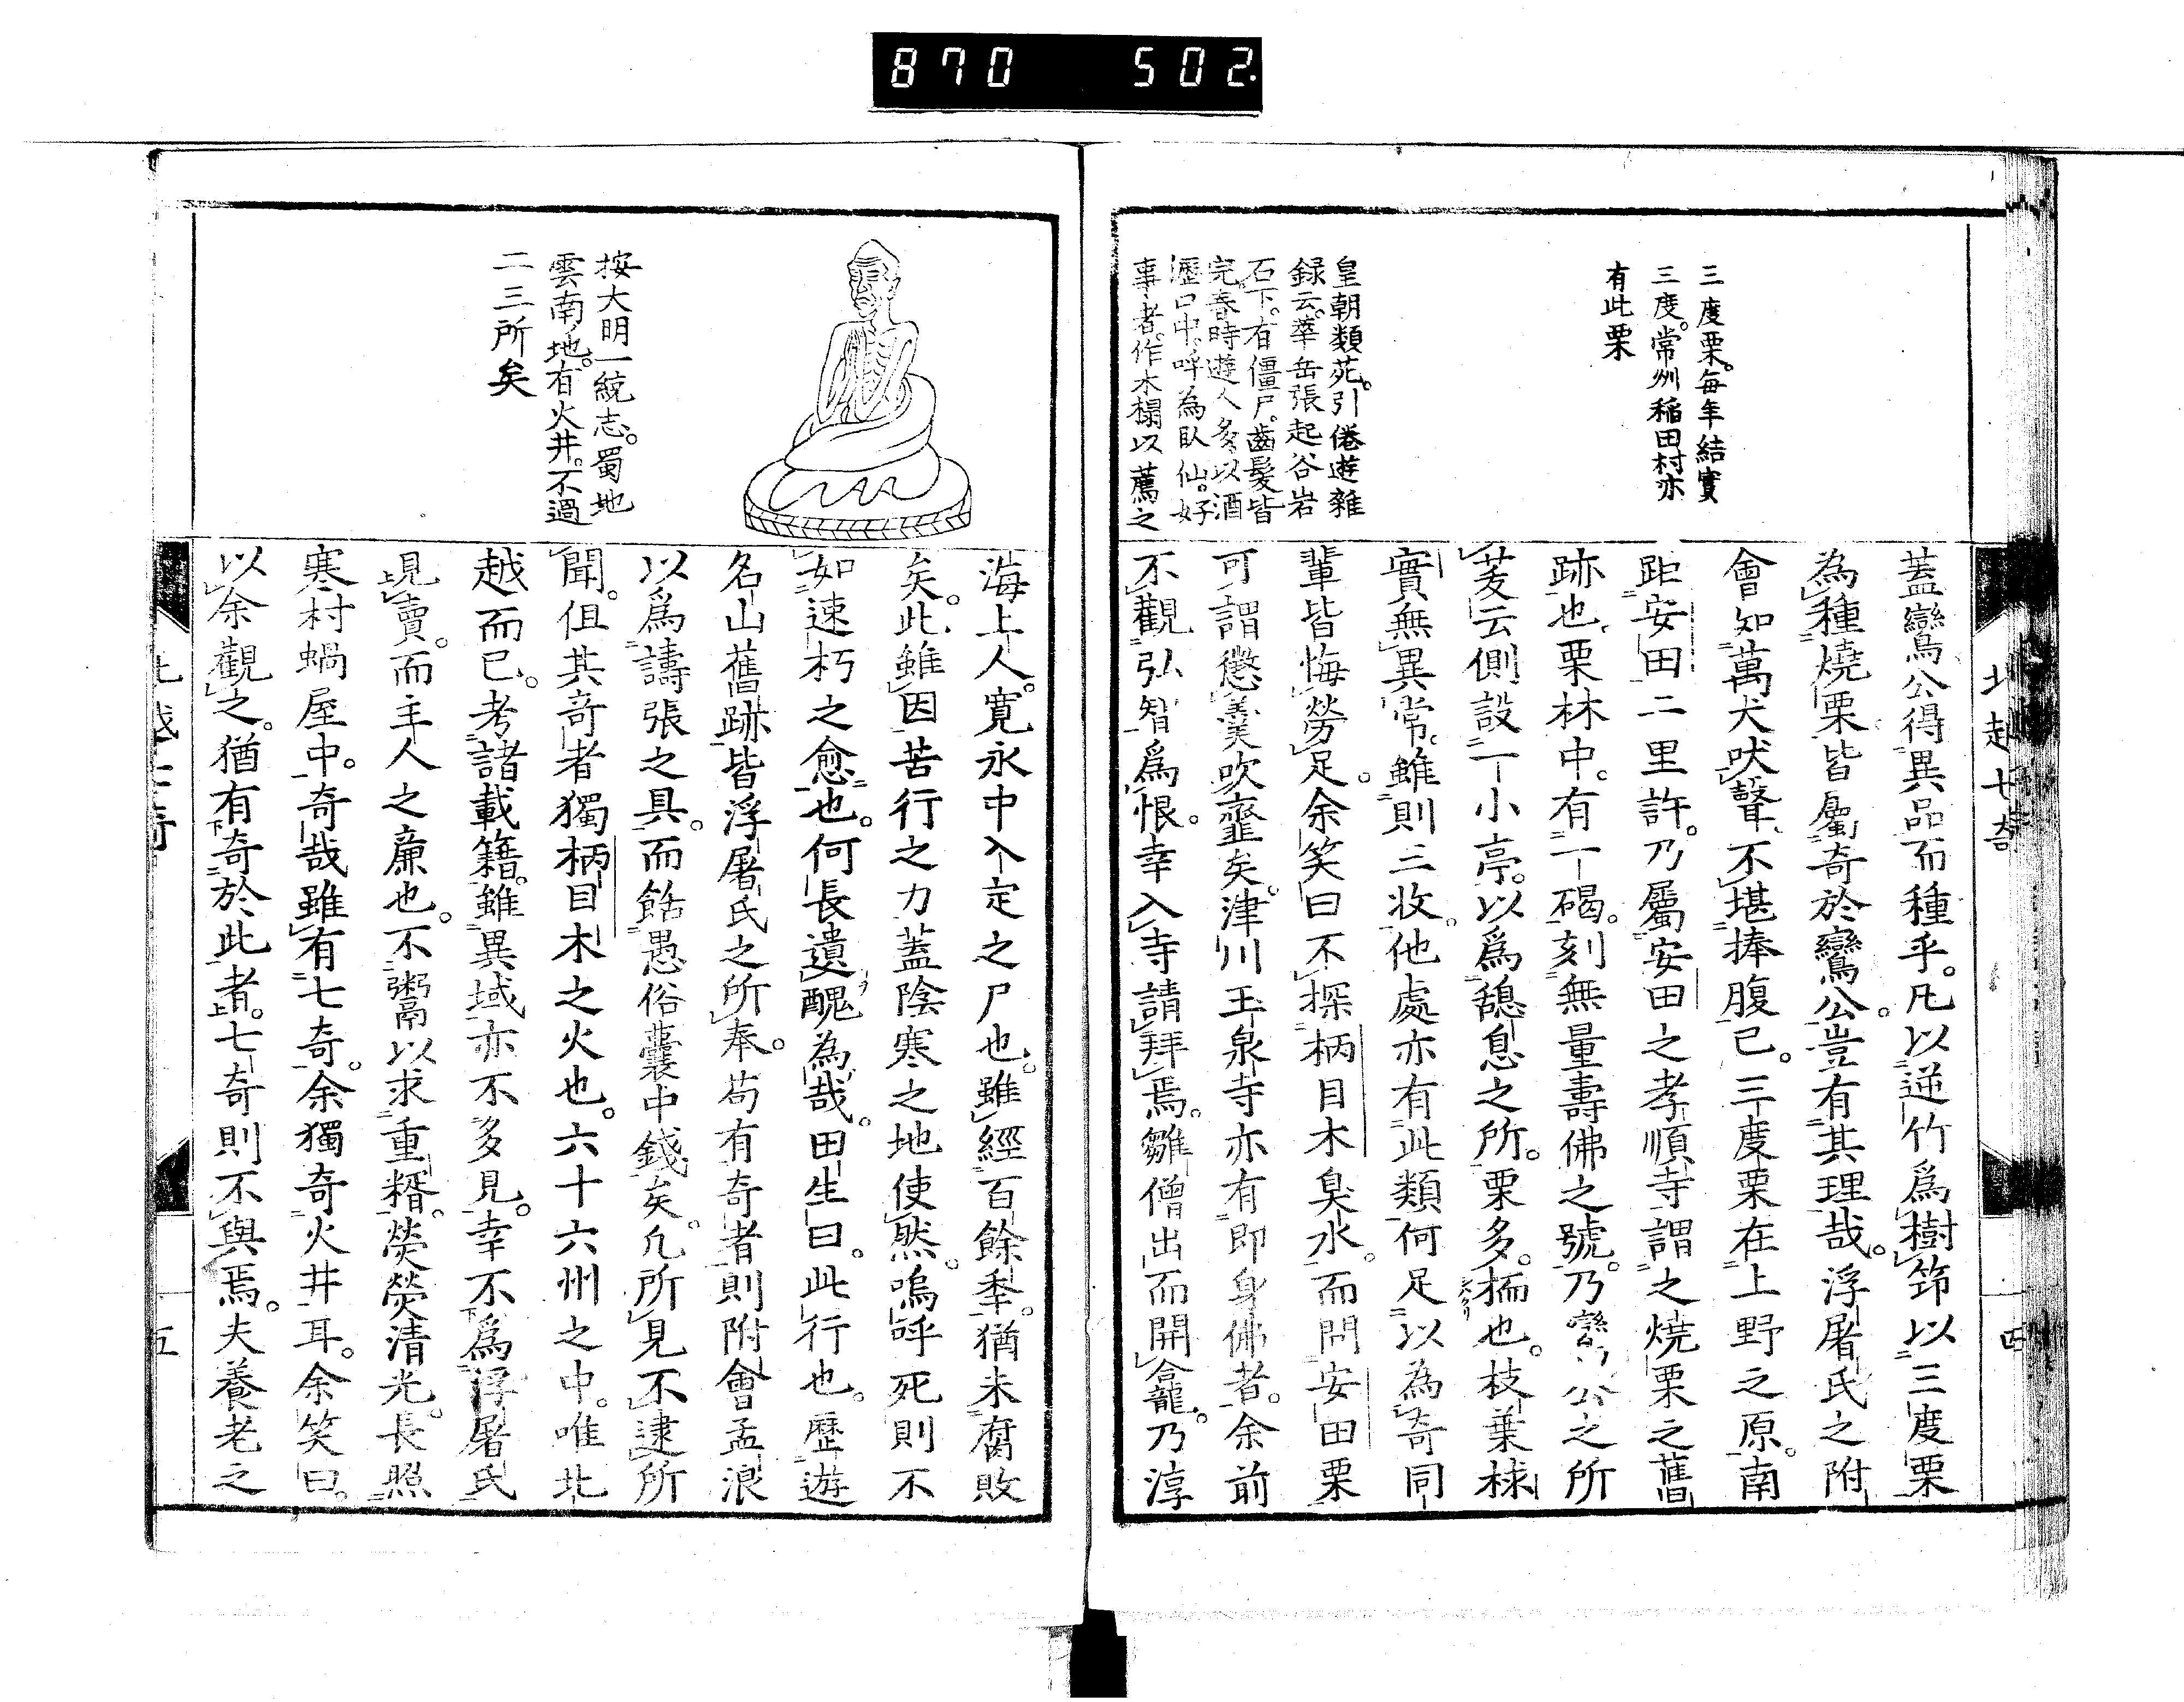 870 502.
三度栗。每年結實
三度。常州稲田村亦
有此栗
皇朝類苑。引倦遊雜
録云。華岳張起谷岩
石下。有僵尸。齒髮皆
完。春時遊人多以酒
瀝口中。呼為臥仙。好
事者。作木榻以薦之
蓋鸞公得異品而種乎。凡以逆竹爲樹筇以三度栗
為種燒栗皆屬奇於鸞公。豈有其理哉。浮屠氏之附
會知萬犬吠聲、不堪捧腹已。三度栗在上野之原。南
距安田二里許。乃屬安田之孝順寺謂之燒栗之舊
跡也、栗林中。有一碣。刻無量壽佛之號。乃鸞公之所
芰云側設一小亭。以爲憩息之所。栗多。栭也。枝葉梂
實無異常。雖則三收。他處亦有此類何足以為奇同
輩皆悔勞足。余笑曰不探柄目木臭水。而問安田栗
可謂懲羹吹虀矣。津川玉泉寺亦有即身佛者。余前
不觀弘智爲恨。幸入寺請拜焉。雛僧出而開龕。乃淳
北越七奇
四
海上人。寛永中入定之尸也。雖經百餘季。猶未腐敗
矣。此雖因苦行之力蓋陰寒之地使然。嗚呼死則不
如速朽之愈也。何長遺醜為哉。田生曰。此行也。歷遊
名山舊跡皆浮屠氏之所奉。苟有奇者則附會孟浪
以爲譸張之具。而餂愚俗囊中錢矣。凢所見不逮所
聞。但其奇者獨柄目木之火也。六十六州之中。唯北
越而已。考諸載籍。雖異域亦不多見。幸不爲浮屠氏
見賣。而主人之廉也。不鬻以求重糈。熒熒清光。長照
寒村蝸屋中。奇哉雖有七奇。余獨奇火井耳。余笑曰。
以余觀之。猶有奇於此者。七奇則不與焉。夫養老之
按大明一統志。蜀地
雲南地。有火井。不過
二三所矣
北越七奇
五